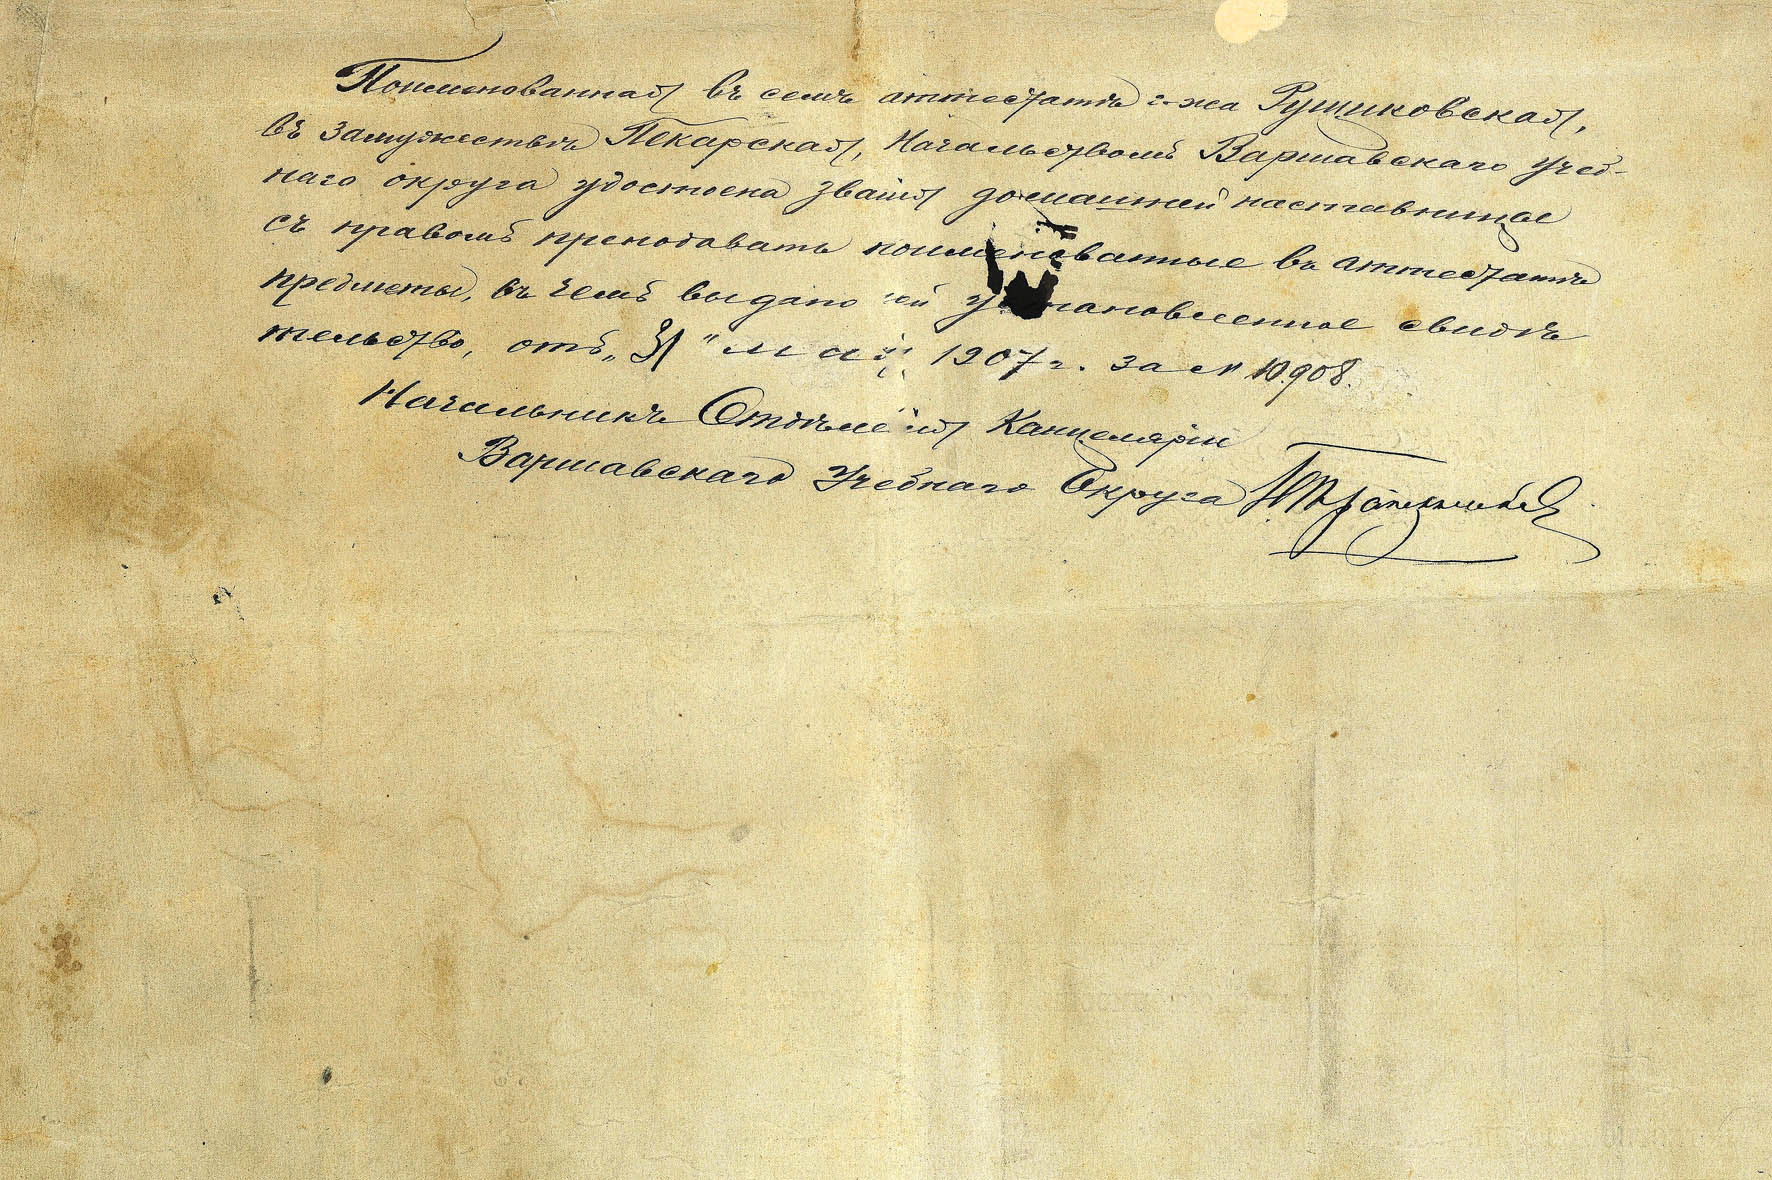 Поименованная въ семъ аттестатѣ г-жа Рущиковская,
въ замужествѣ Пекарская, Начальствомъ Варшавскаго Учеб-
наго округа удостоена званія домашней наставницы
съ правомъ преподавать поименованные въ аттестатѣ
предметы, въ чемъ выдано ей установленное свидѣ
тельство, отъ „31" мая 1907 г. за № 10908.
Начальникъ Отдѣленія Канцеляріи
Варшавскаго Учебнаго Округа